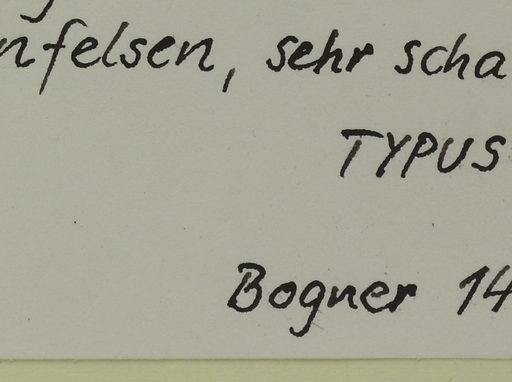 nfelsen, sehr scha
TYPUS
Bogner 14